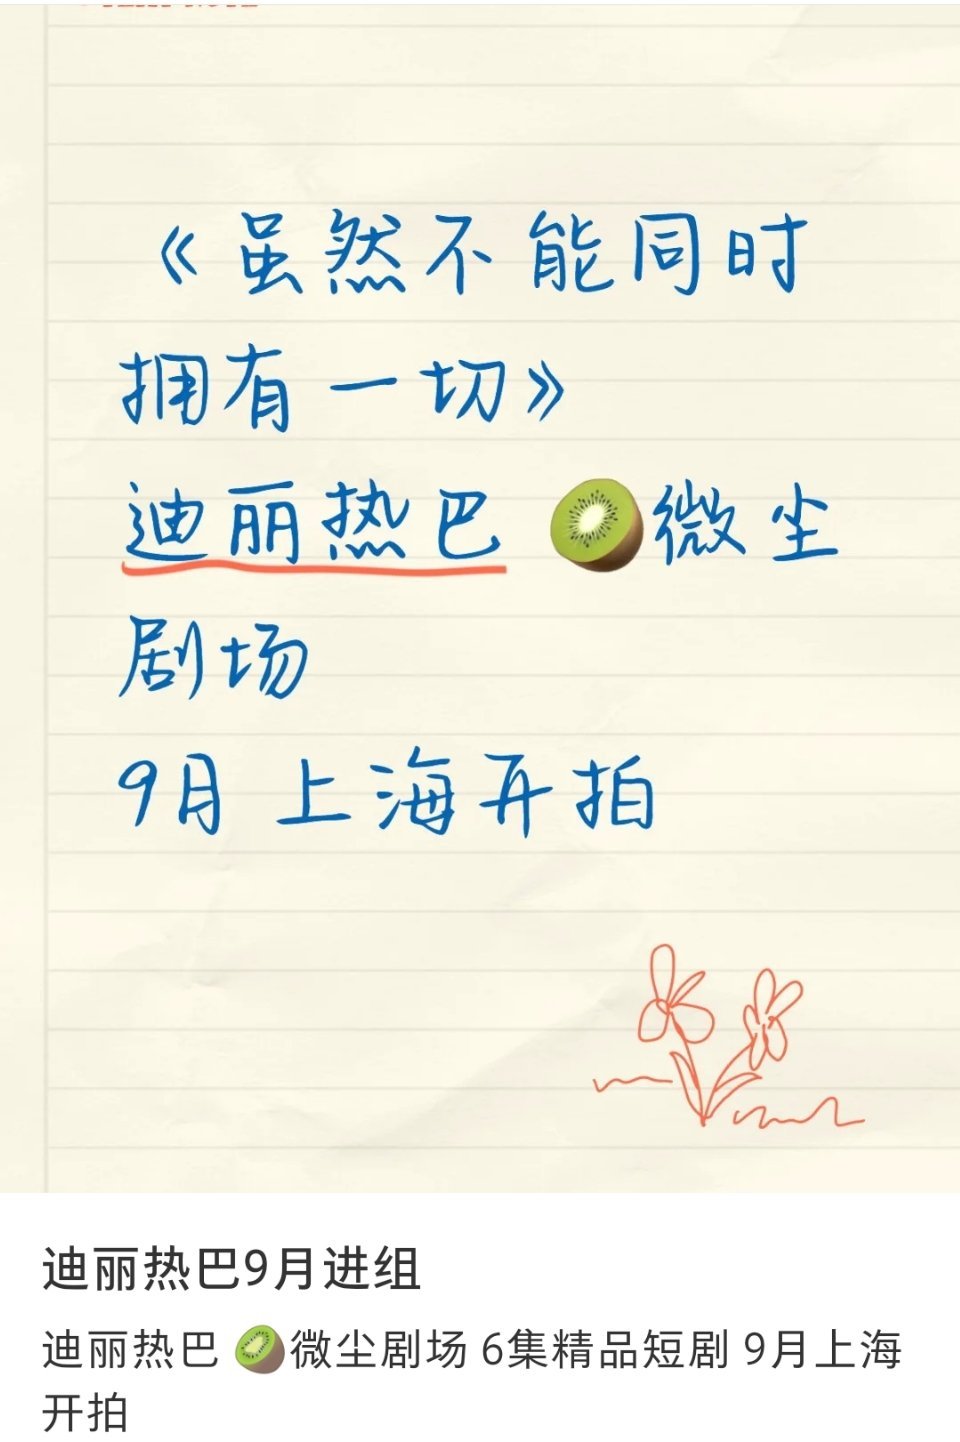 《虽然不能同时
拥有一切》
迪丽热巴 🥝微尘
剧场
9月上海开拍
迪丽热巴9月进组
迪丽热巴 🥝微尘剧场 6集精品短剧 9月上海
开拍